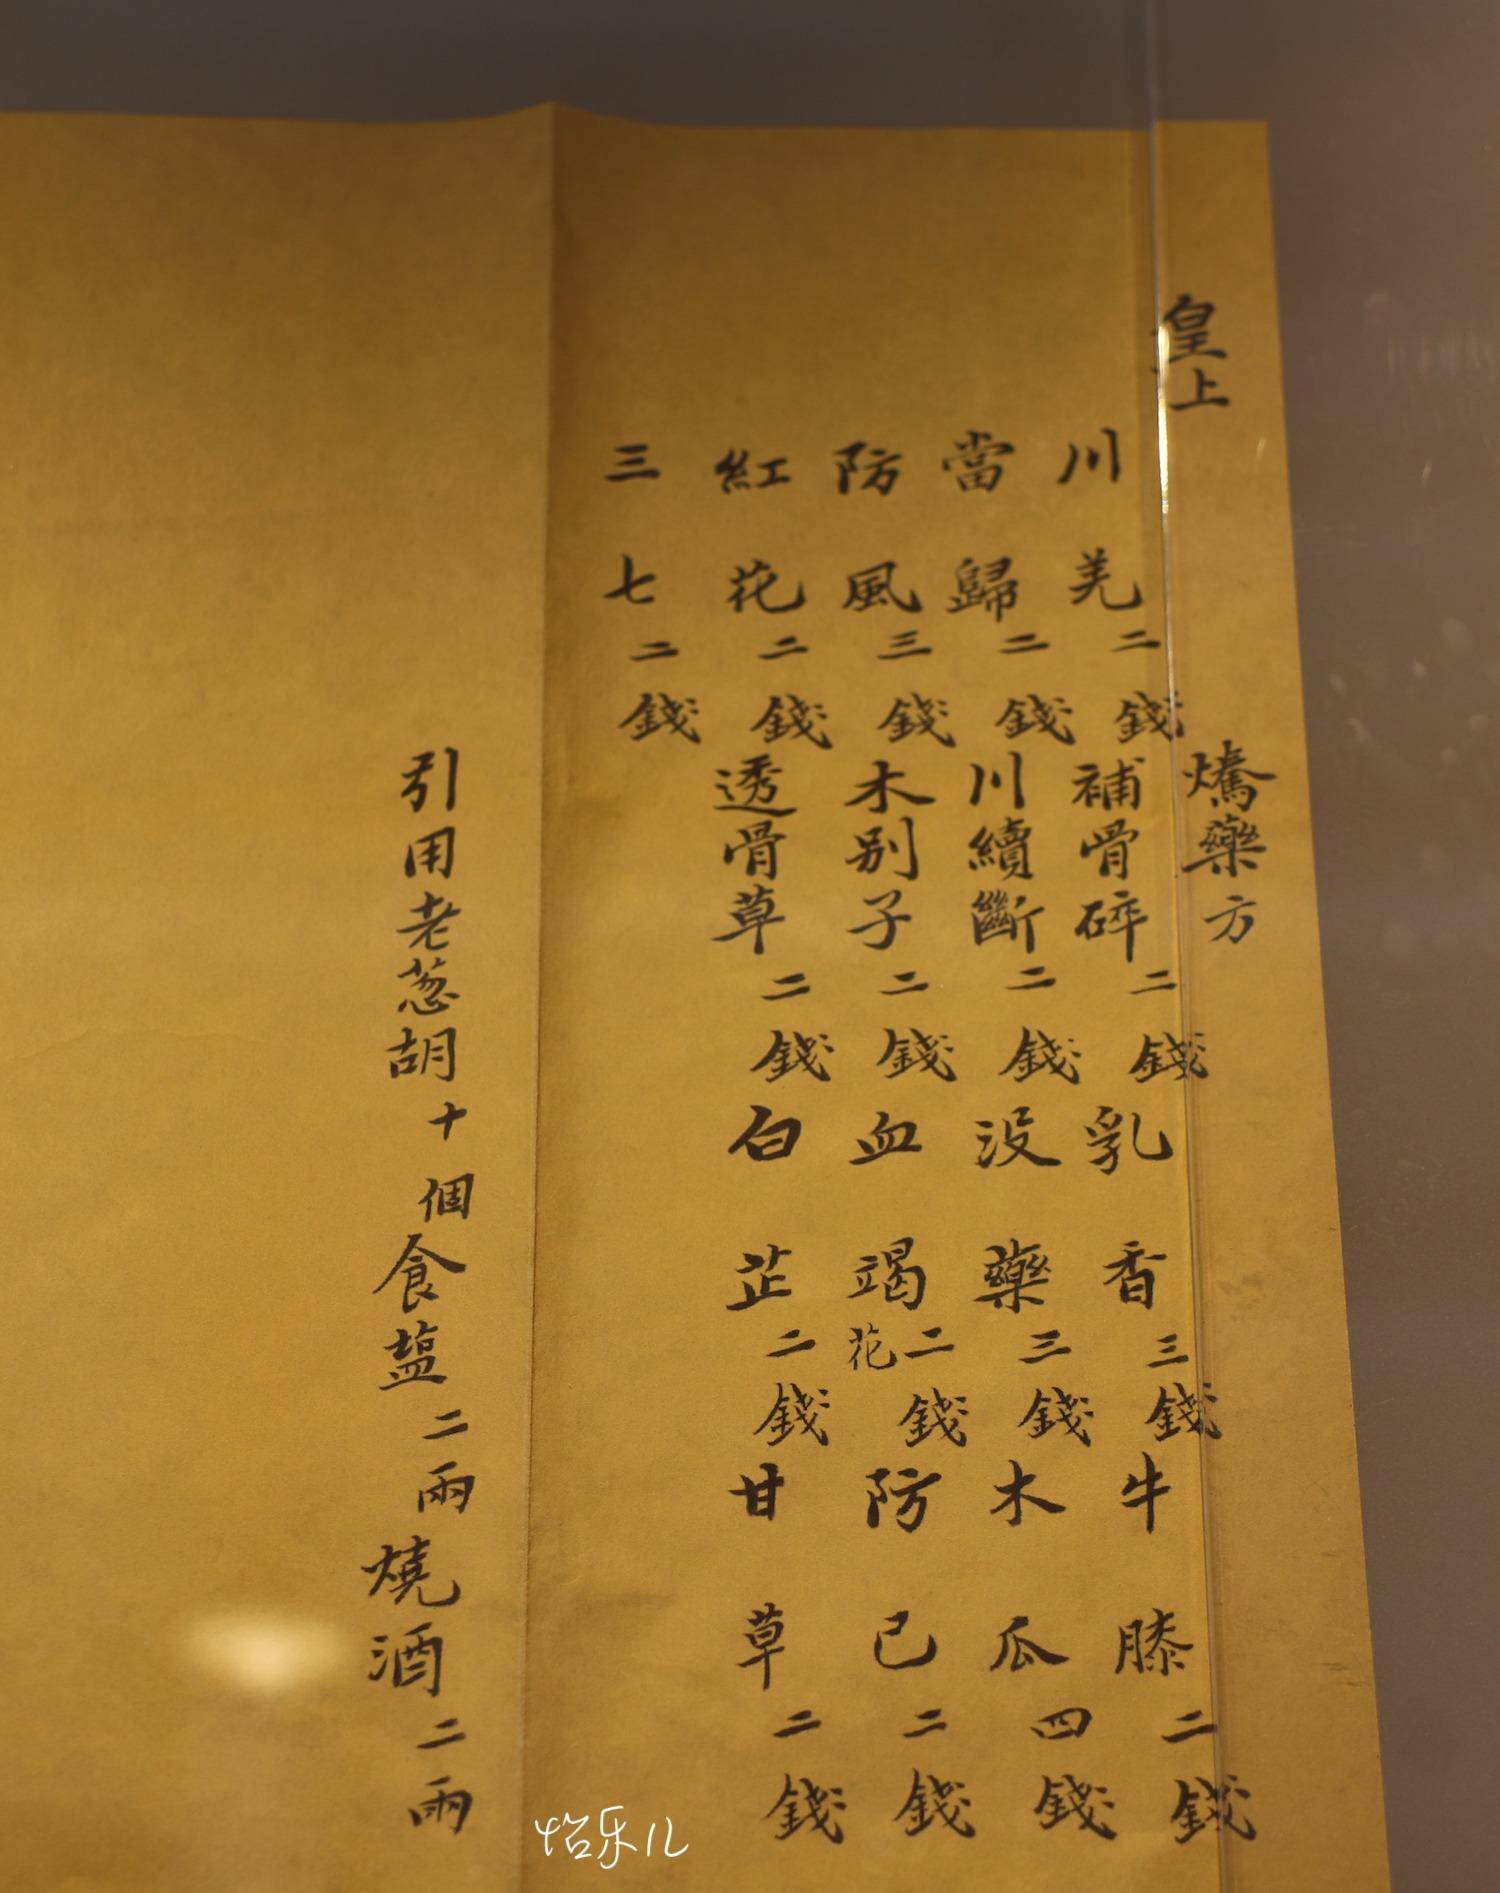 皇上
燆藥方
川羌二錢 補骨碎二錢 乳香三錢 牛膝二錢
當歸二錢 川續斷二錢 没藥三錢 木瓜四錢
防風三錢 木别子二錢 血竭花二錢 防已二錢
紅花二錢 透骨草二錢 白芷二錢 甘草二錢
三七二錢
引用老葱胡十個食塩二兩燒酒二兩
怡乐儿